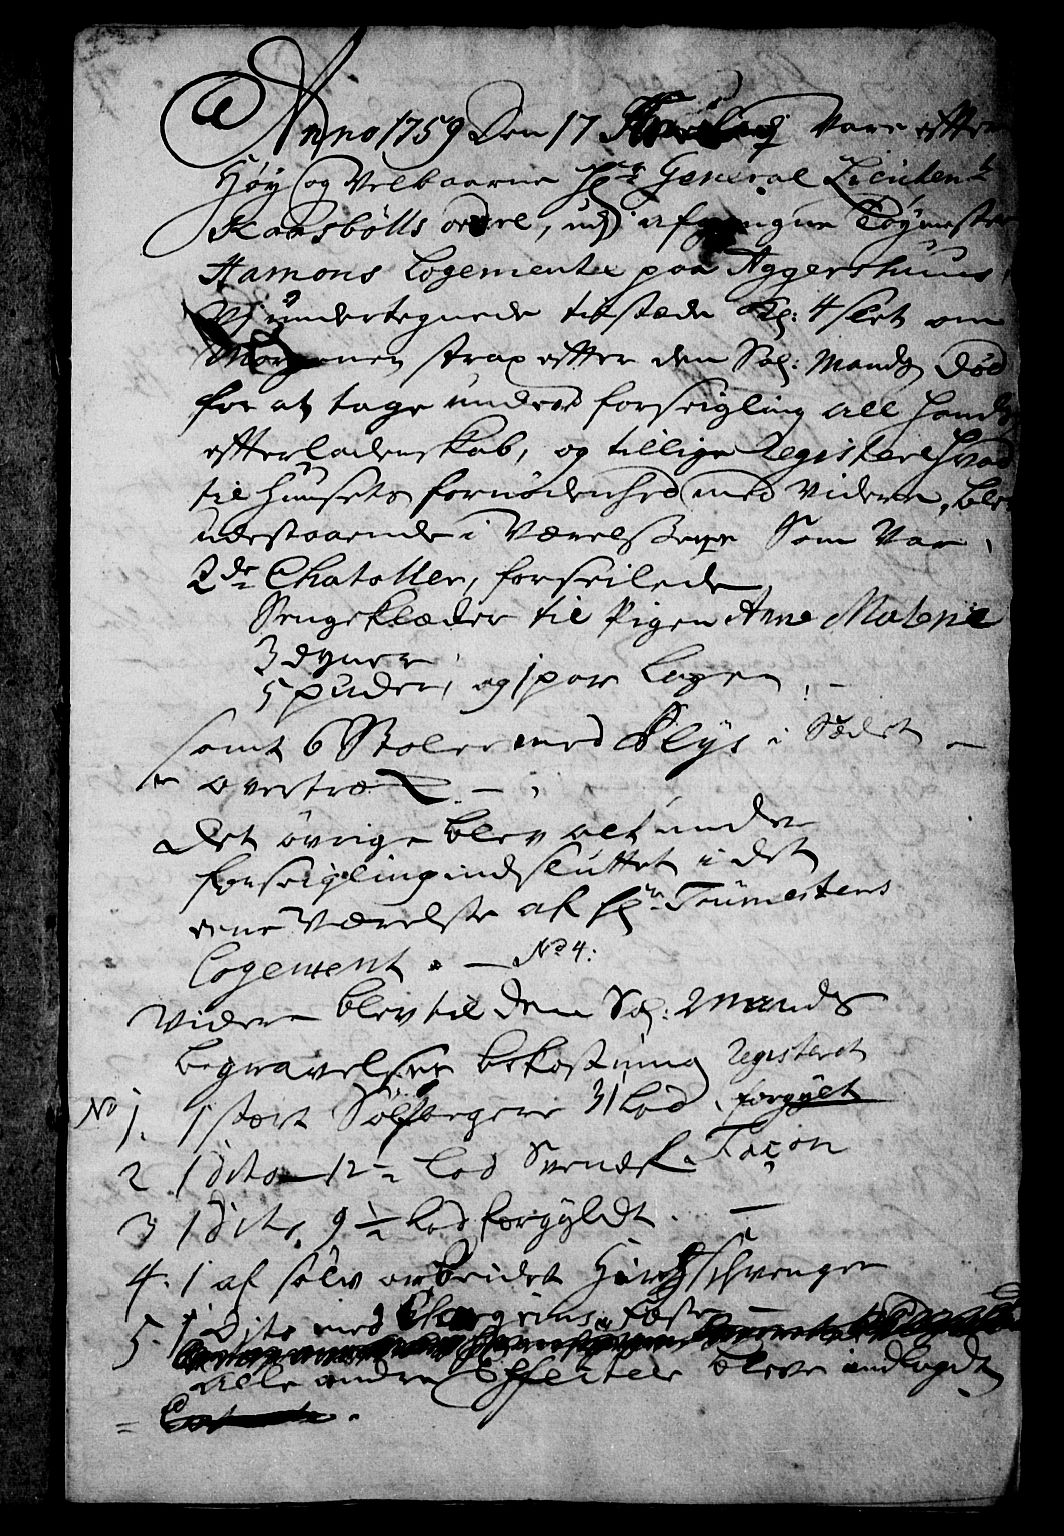 Anno 1759 Den 17 Vare efter
Høy og Velbaarne Hr. General Lieutent:
Kaasbølls ordre, udj afgangne Tøymester
Hamons Logemente paa Aggershuus,
Vj undertegnede tilstæde Kl: 4 slet om
Morgenen strax efter den Sal: Mands Død
for at tage under forseigling all hands
efterladenskab, og tillige Registere hvad
til Huusets fornødenhed med videre, blev
udestaaende i Værelserne Som Var,
2de Chatoller, forseilede
Sengeklæder til Pigen Anne Malene
3 dyner,
5 puder, og 1 par Lagen, -
samt 6 Stoler med Plys i Sædet -
overtræk. -
Det øvrige blev alt under
forseigling indsluttet i det
eene Værelse af Hr. Tøumesters
Logement. - No 4:
Videre blev til den Sal: Mands
begravelses bekostning Registeret
No 1. 1 stort Sølfbegere 31 Lod, forgylt
2 1 dito 12 1/2 Lod Svensk Façon
3 1 Dito, 9 1/2 Lod forgyldt. -
4. 1 af sølv arbeidet Hirschfenger
5. 1 Dito med Chagrins fæste -
alle andre Effecter bleve indlagdt